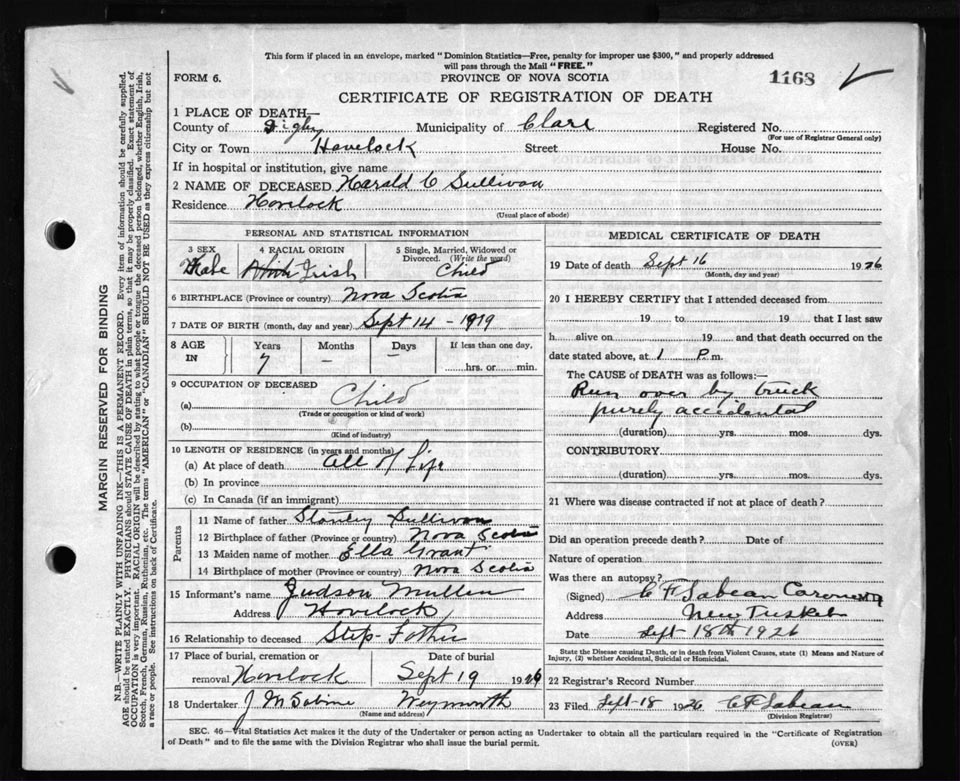 This form if placed in an envelope, marked "Dominion Statistics—Free, penalty for improper use $300," and properly addressed
will pass through the Mail "FREE."
FORM 6.
PROVINCE OF NOVA SCOTIA
1168
CERTIFICATE OF REGISTRATION OF DEATH
1 PLACE OF DEATH
County of Digby Municipality of Clare Registered No.
(For use of Registrar General only)
City or Town Havelock Street House No.
If in hospital or institution, give name
2 NAME OF DECEASED Harald C Sullivan
Residence Havelock
(Usual place of abode)
PERSONAL AND STATISTICAL INFORMATION
3 SEX 4 RACIAL ORIGIN 5 Single, Married, Widowed or Divorced. (Write the word)
Male Irish Child
6 BIRTHPLACE (Province or country) Nova Scotia
7 DATE OF BIRTH (month, day and year) Sept 14 - 1919
8 AGE IN Years Months Days If less than one day,
7 — — hrs. or min.
9 OCCUPATION OF DECEASED
(a) Child
(Trade or occupation or kind of work)
(b)
(Kind of industry)
10 LENGTH OF RESIDENCE (in years and months)
(a) At place of death All of Life
(b) In province
(c) In Canada (if an immigrant)
Parents
11 Name of father Stanley Sullivan
12 Birthplace of father (Province or country) Nova Scotia
13 Maiden name of mother Ella Grant
14 Birthplace of mother (Province or country) Nova Scotia
15 Informant's name Judson Mullen
Address Hovilock
16 Relationship to deceased Step-Father
17 Place of burial, cremation or removal Date of burial
Hovilock Sept 19 1926
18 Undertaker J M Sabine Weymouth
(Name and address)
MEDICAL CERTIFICATE OF DEATH
19 Date of death Sept 16 1926
(Month, day and year)
20 I HEREBY CERTIFY that I attended deceased from
19 to 19 that I last saw
h alive on 19 and that death occurred on the
date stated above, at 1 P. m.
The CAUSE of DEATH was as follows:—
Run over by truck
purely accidental
(duration) yrs. mos. dys.
CONTRIBUTORY
(duration) yrs. mos. dys.
21 Where was disease contracted if not at place of death?
Did an operation precede death? Date of
Nature of operation
Was there an autopsy?
(Signed) C F Sabean Coroner
Address New Tusket
Date Sept 18th 1926
State the Disease causing Death, or in death from Violent Causes, state (1) Means and Nature of
Injury, (2) whether Accidental, Suicidal or Homicidal.
22 Registrar's Record Number
23 Filed Sept-18 1926 C F Sabean
(Division Registrar)
SEC. 46—Vital Statistics Act makes it the duty of the Undertaker or person acting as Undertaker to obtain all the particulars required in the "Certificate of Registration
of Death" and to file the same with the Division Registrar who shall issue the burial permit.
(OVER)
MARGIN RESERVED FOR BINDING
N.B.—WRITE PLAINLY WITH UNFADING INK—THIS IS A PERMANENT RECORD. Every item of information should be carefully supplied.
AGE should be stated EXACTLY. PHYSICIANS should STATE CAUSE OF DEATH in plain terms, so that it may be properly classified. Exact statement of
OCCUPATION is very important. RACIAL ORIGIN will be described by stating to what people or tongue the deceased person belonged, whether English, Irish,
Scotch, French, German, Russian, Ruthenian, etc. The terms "AMERICAN" or "CANADIAN" SHOULD NOT BE USED as they express citizenship but not
a race or people. See instructions on back of Certificate.